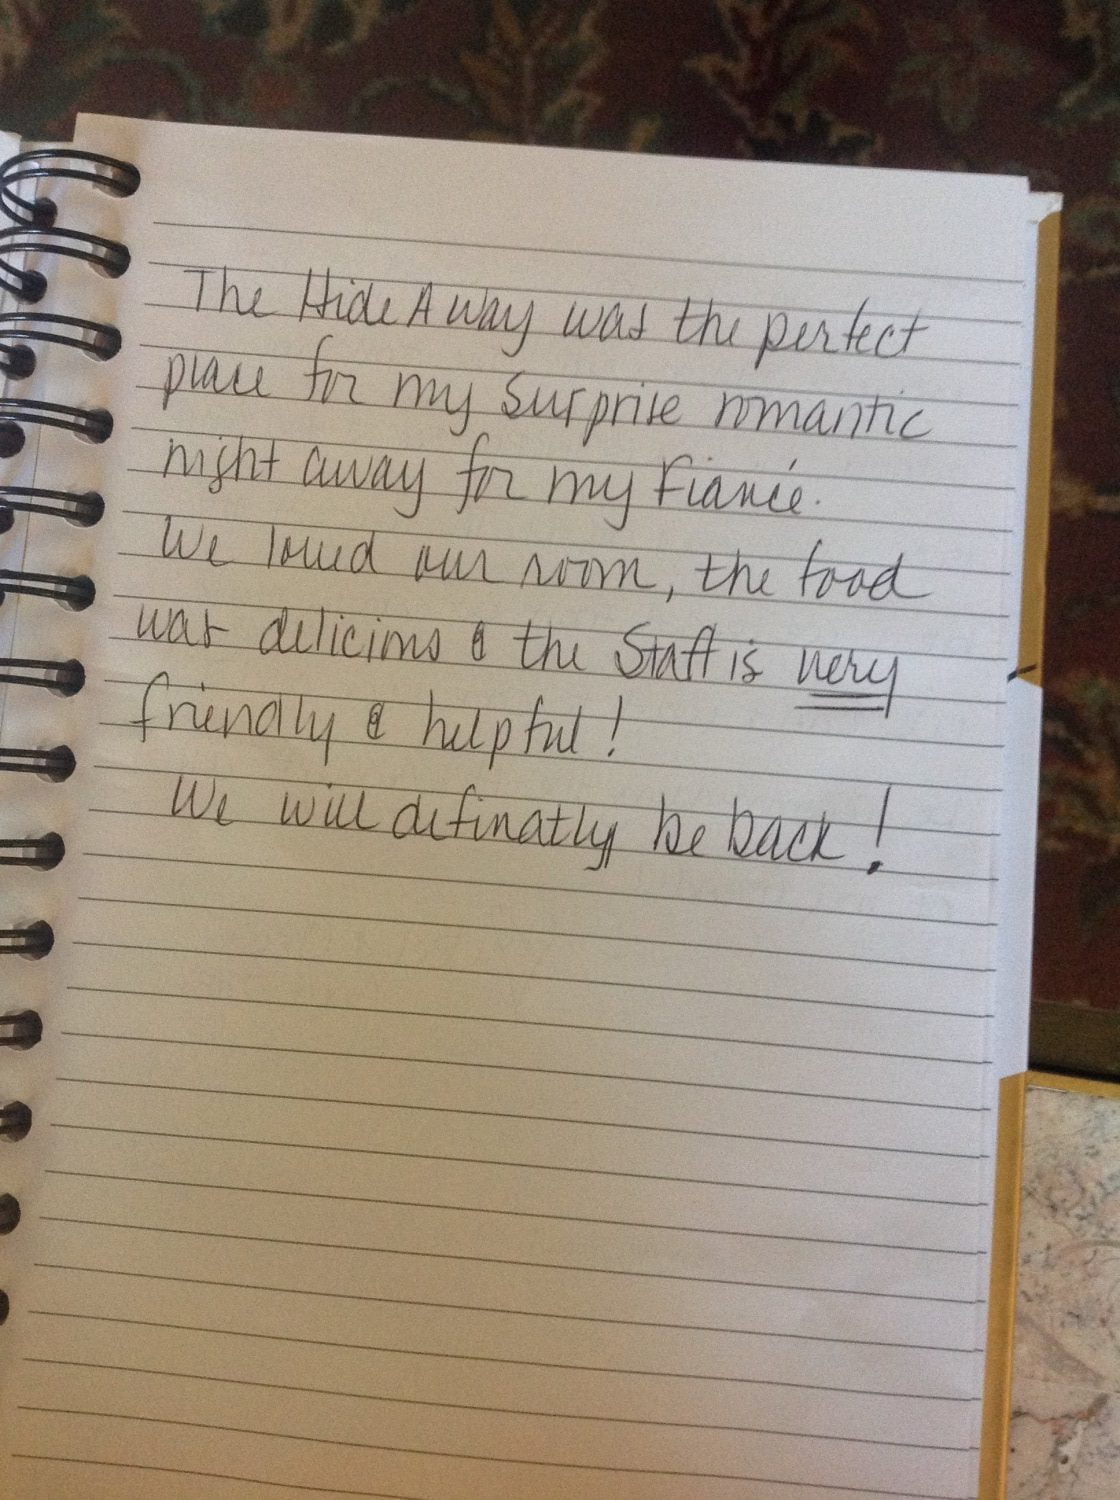 The Hide Away was the perfect
place for my surprise romantic
night away for my Fiancé.
We loved our room, the food
was delicious & the Staff is very
friendly & helpful!
We will definatly be back!